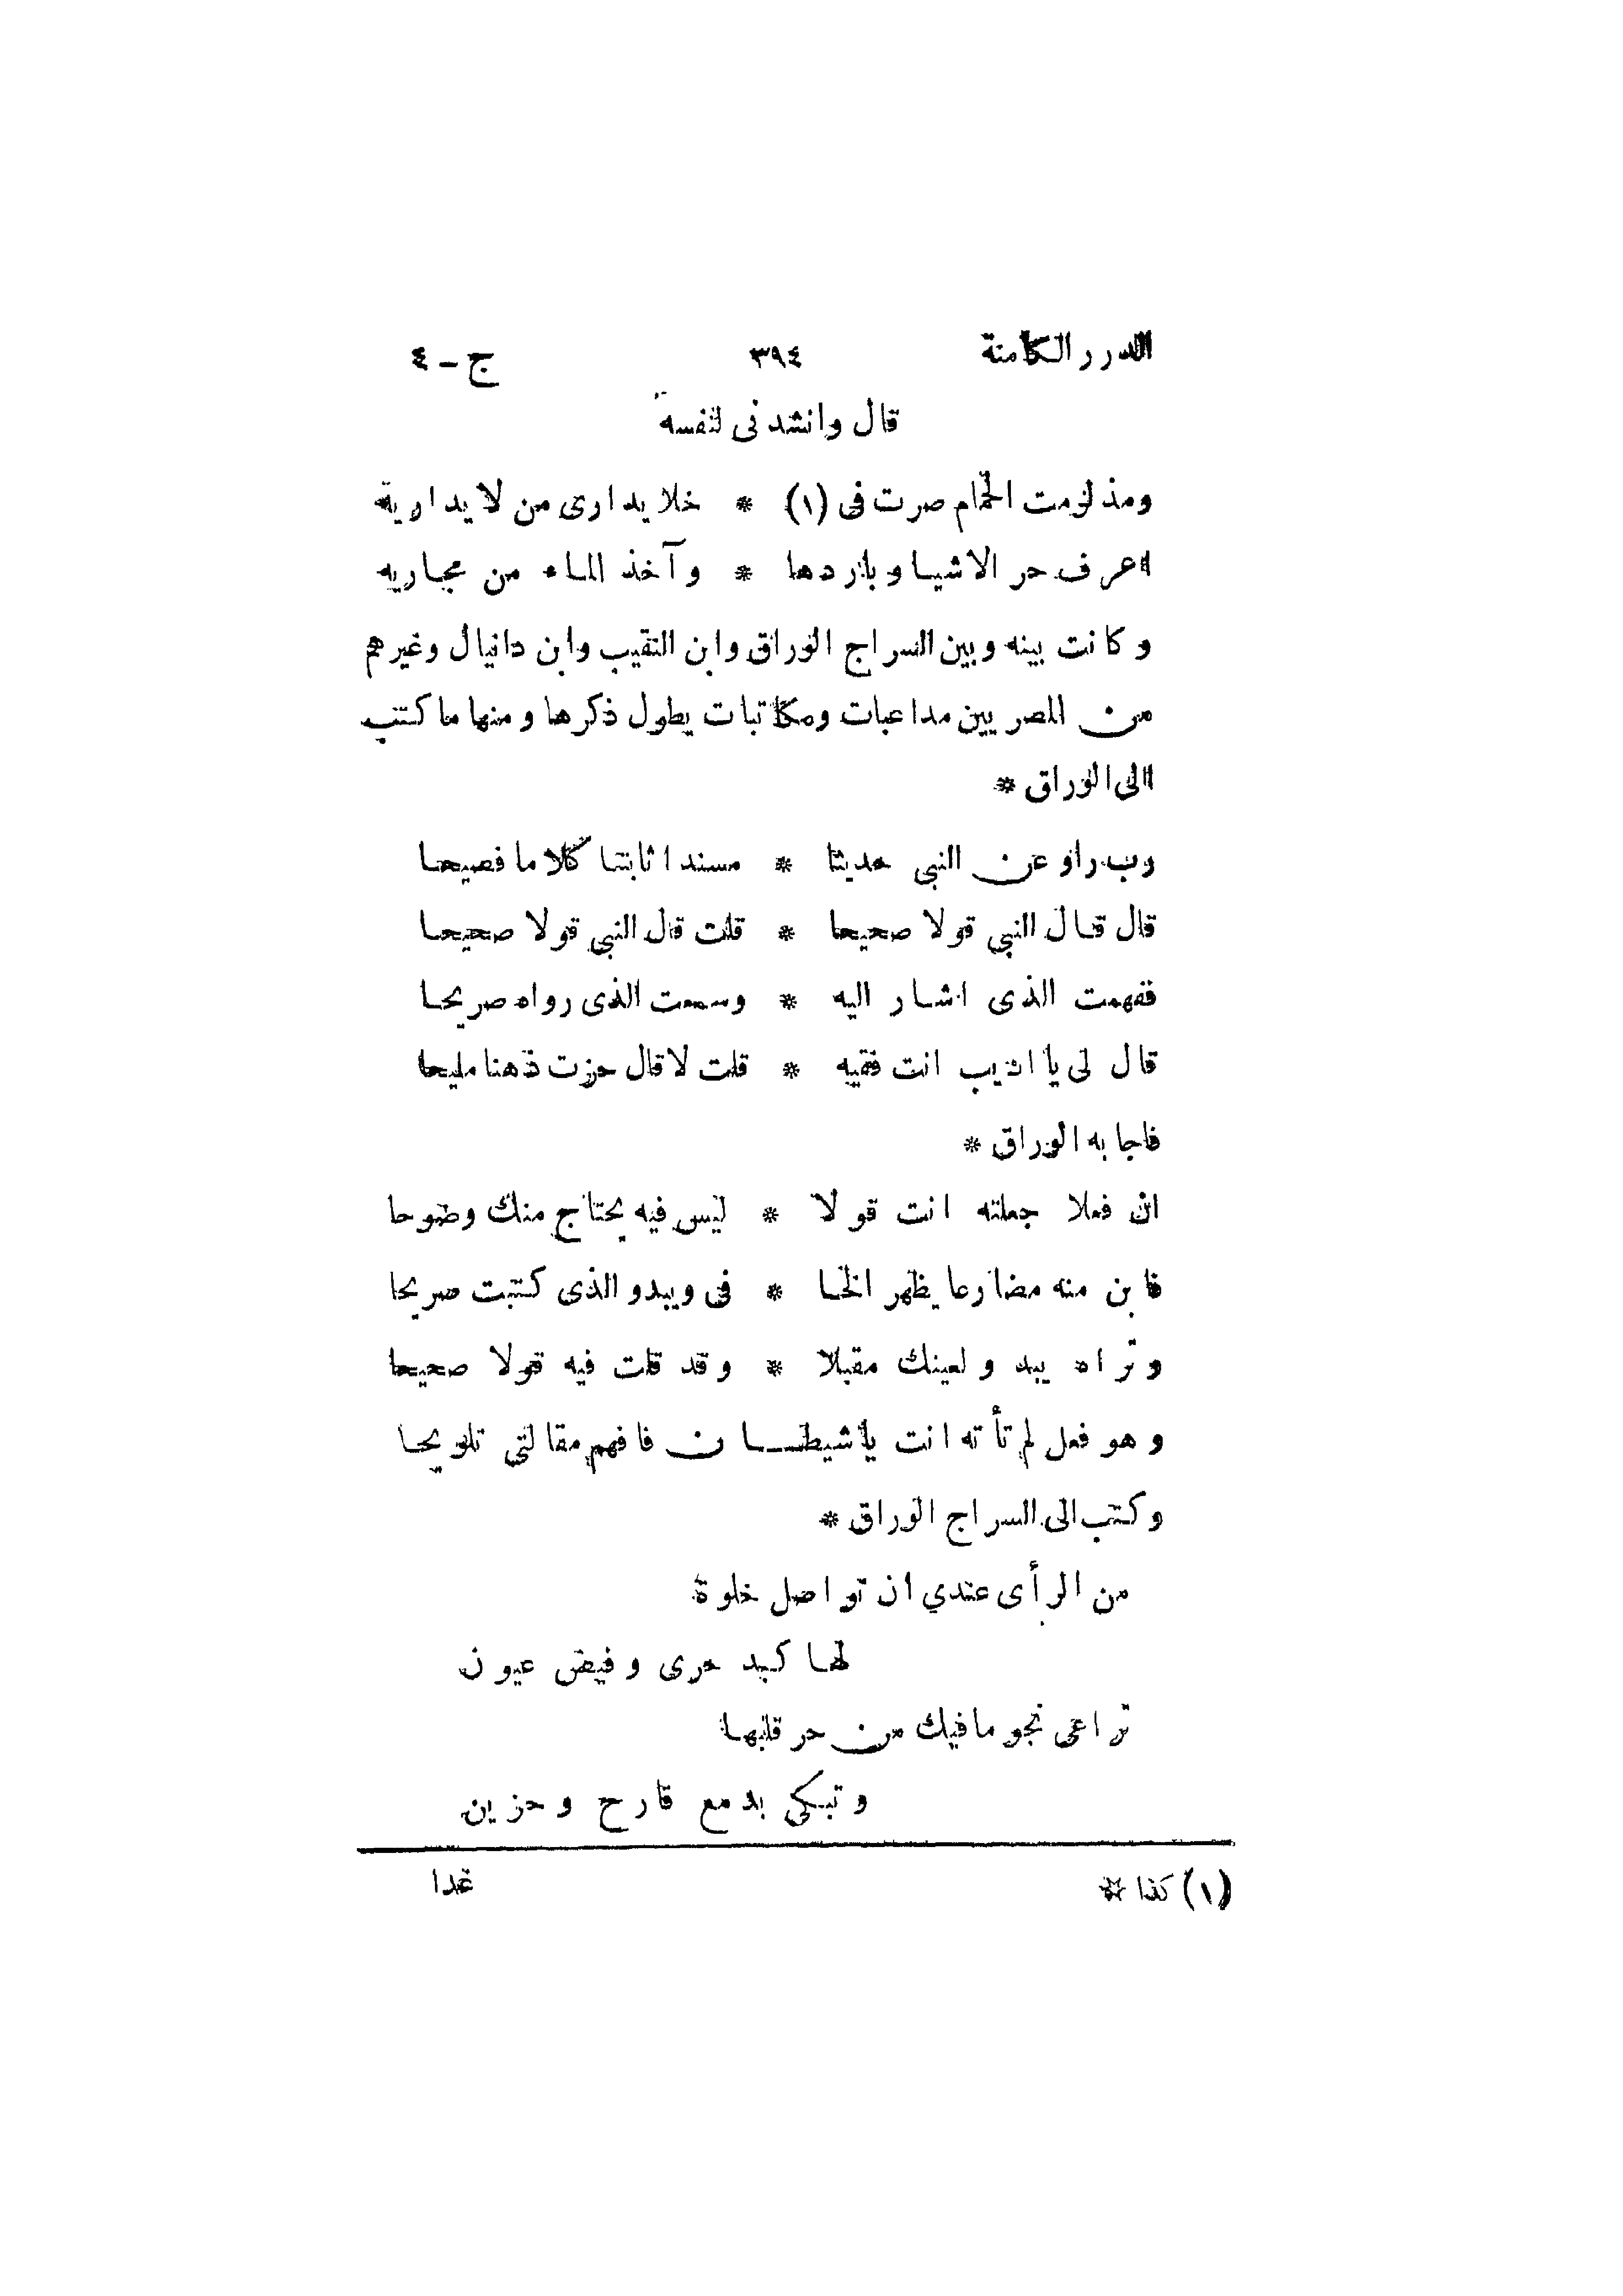 الدرر الكامنة ٣٩٤ ج - ٤
قال وانشدنى لنفسه
ومذ لزمت الحمام صرت فى (١) * خلا يدارى من لا يداريه
اعرف حر الاشيا وباردها * وآخذ الماء من مجاريه
وكانت بينه وبين السراج الوراق وابن النقيب وابن دانيال وغيرهم
من المصريين مداعبات ومكاتبات يطول ذكرها ومنها ما كتب
الى الوراق *
رب راو عن النبى حديثا * مسندا ثابتا كلاما فصيحا
قال قال النبي قولا صحيحا * قلت قال النبي قولا صحيحا
ففهمت الذى اشار اليه * وسمعت الذى رواه صريحا
قال لى يا اديب انت فقيه * قلت لا قال حزت ذهنا مليحا
فاجابه الوراق *
ان فعلا جعلته انت قولا * ليس فيه يحتاج منك وضوحا
فابن منه مضارعا يظهر الخا * فى ويبدو الذى كتبت صريحا
وتراه يبدو لعينك مقبلا * وقد قلت فيه قولا صحيحا
وهو فعل لم تأته انت يا شيطان فافهم مقالتى تلويحا
وكتب الى السراج الوراق *
من الرأى عندي ان تواصل خلوة
لها كبد حرى وفيض عيون
تراعى نجوما فيك من حر قلبها
وتبكى بدمع قارح وحزين
(١) كذا * غدا